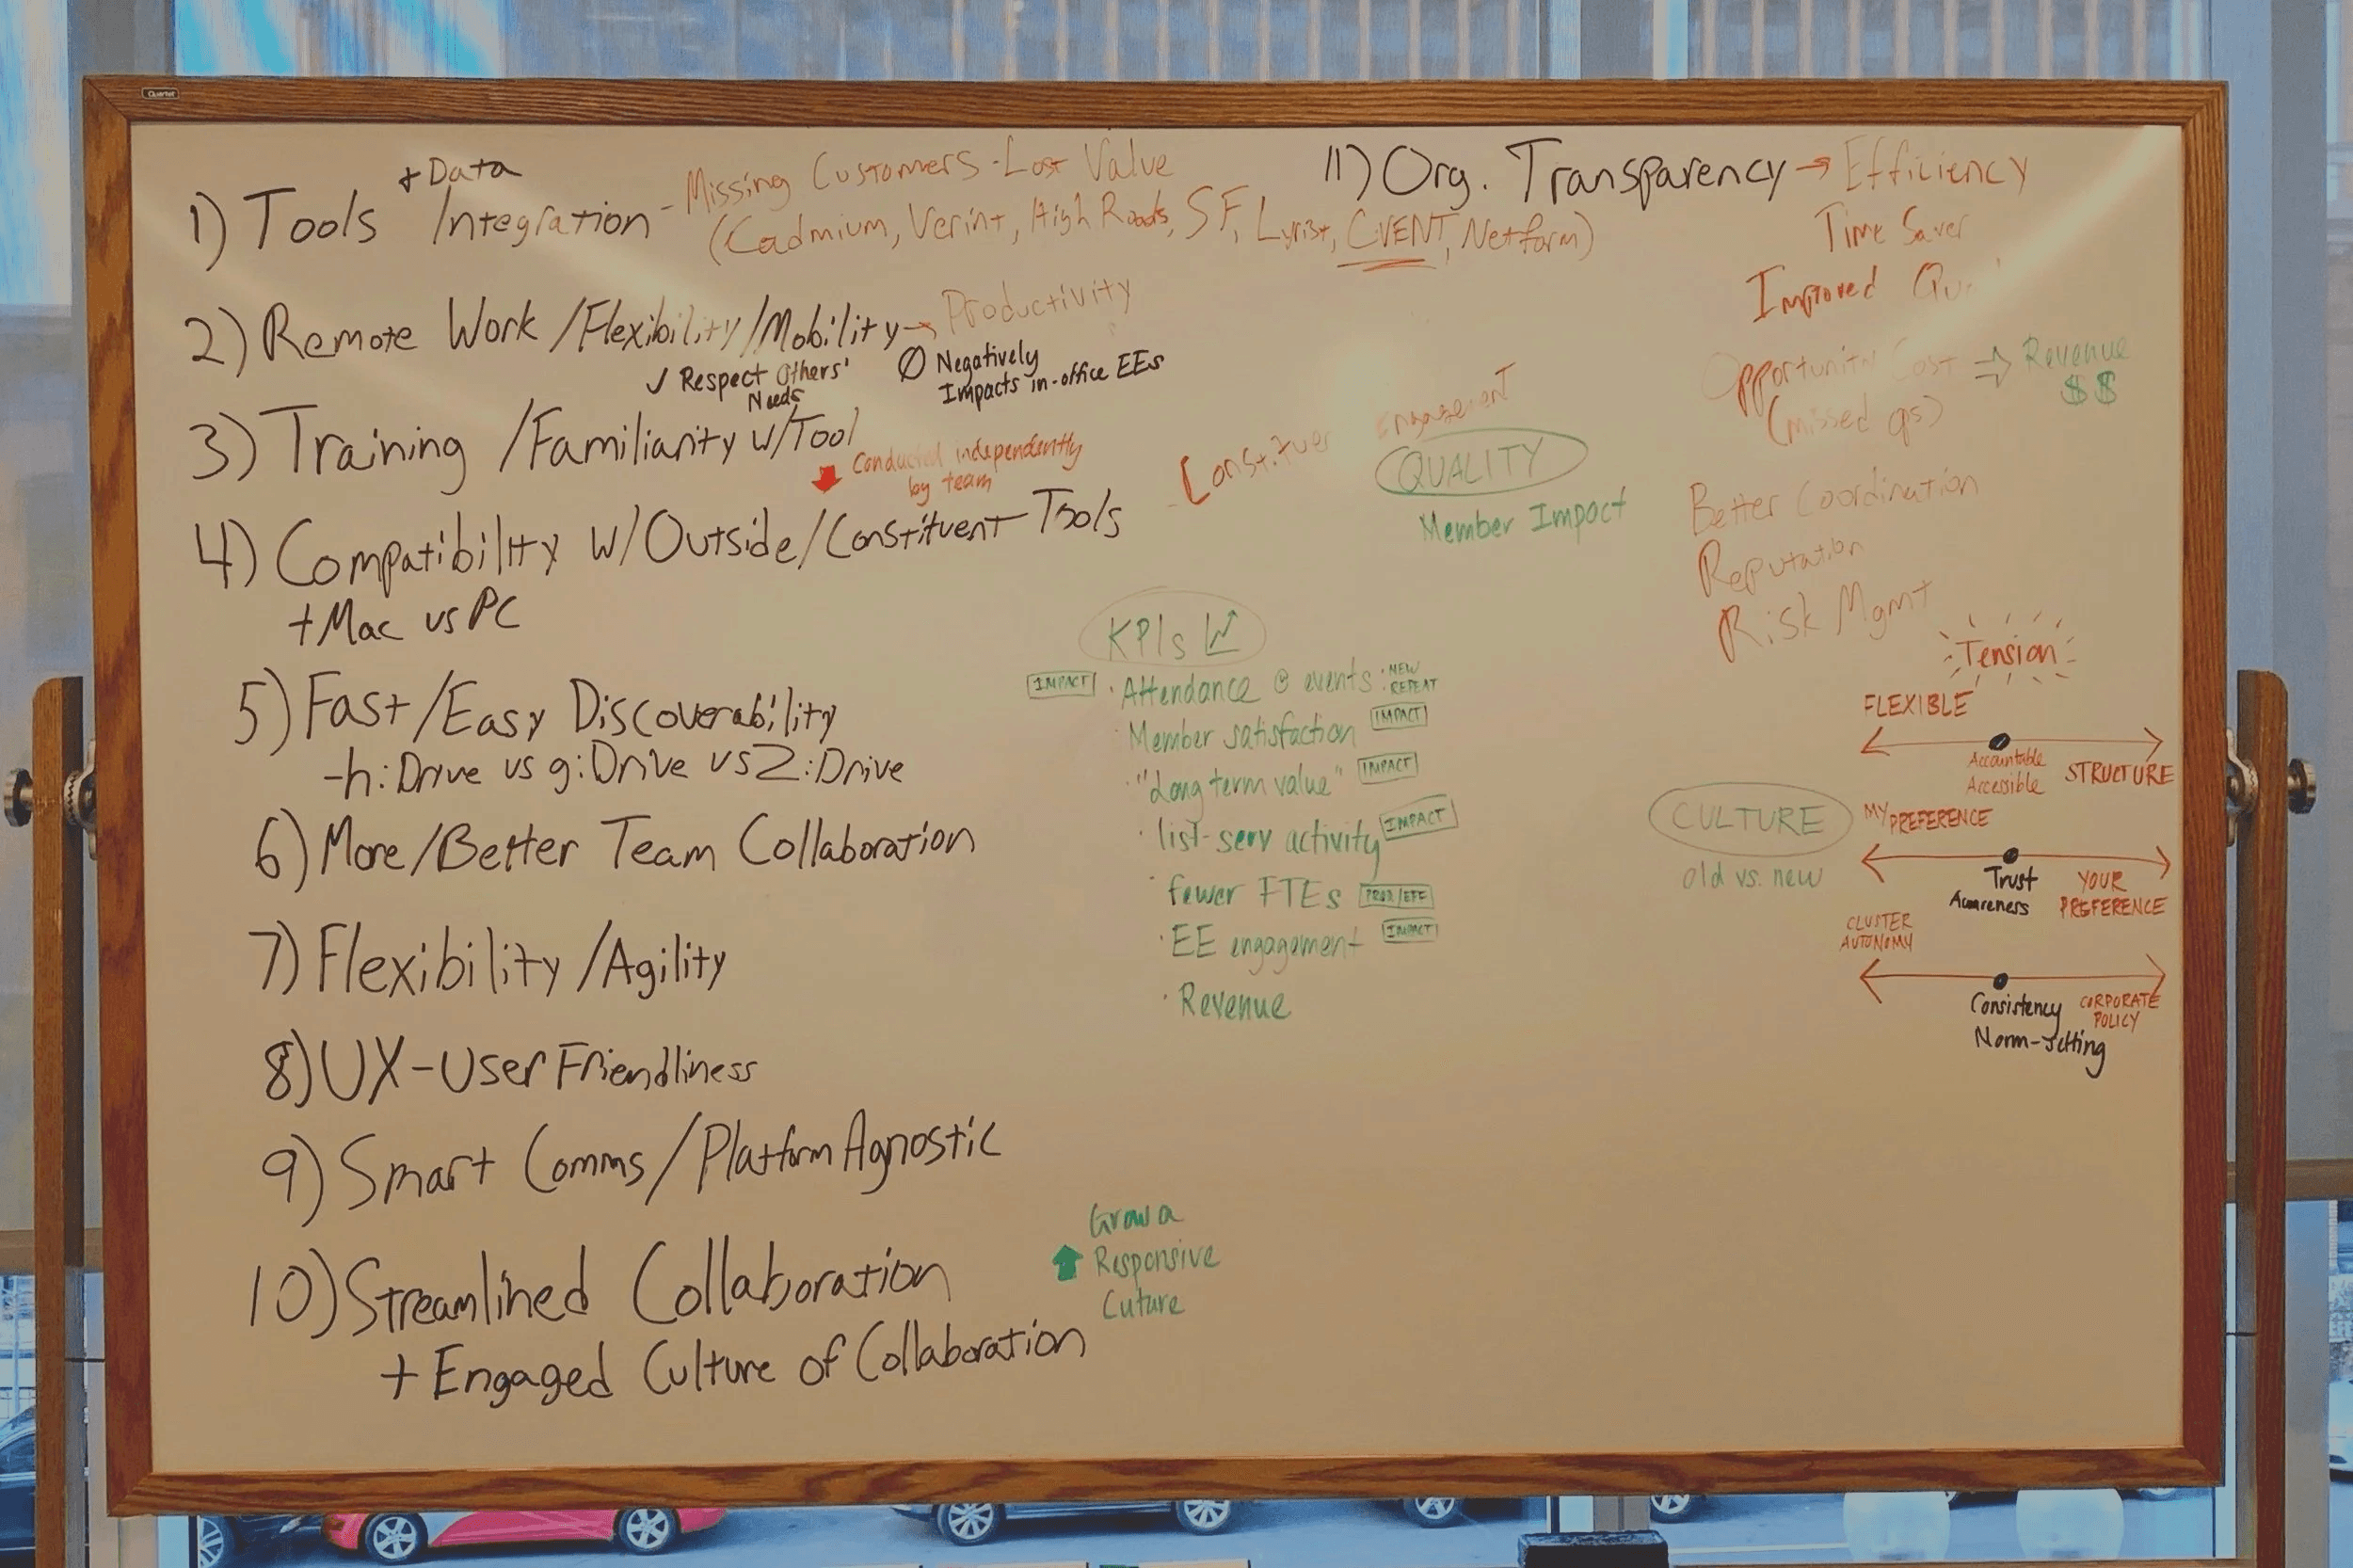 Quartet
+ Data
1) Tools Integration - Missing Customers - Lost Value
(Cadmium, Verint, High Roads, SF, Lyrist, CVENT, Netform)
2) Remote Work / Flexibility / Mobility → Productivity
✓ Respect Others'
Needs
∅ Negatively
Impacts in-office EEs
3) Training / Familiarity w/ Tool
Conducted independently
by team
4) Compatibility w/ Outside / Constituent Tools
+ Mac vs PC
5) Fast / Easy Discoverability
- h: Drive vs g: Drive vs Z: Drive
6) More / Better Team Collaboration
7) Flexibility / Agility
8) UX - User Friendliness
9) Smart Comms / Platform Agnostic
10) Streamlined Collaboration
+ Engaged Culture of Collaboration
Grow a
Responsive
Cuture
Engagement
QUALITY
Member Impact
KPIs
IMPACT · Attendance @ events · NEW
· REPEAT
· Member satisfaction IMPACT
· "Long term value" IMPACT
· list-serv activity IMPACT
· fewer FTEs PROD/EFF
· EE engagement IMPACT
· Revenue
11) Org. Transparency → Efficiency
Time Saver
Improved
Opportunity Cost ⇒ Revenue
(missed ops) $$
Better Coordination
Reputation
Risk Mgmt
Tension
FLEXIBLE
Accountable
Accessible
STRUCTURE
CULTURE
old vs. new
MY PREFERENCE
Trust
Awareness
YOUR
PREFERENCE
CLUSTER
AUTONOMY
Consistency
Norm-setting
CORPORATE
POLICY